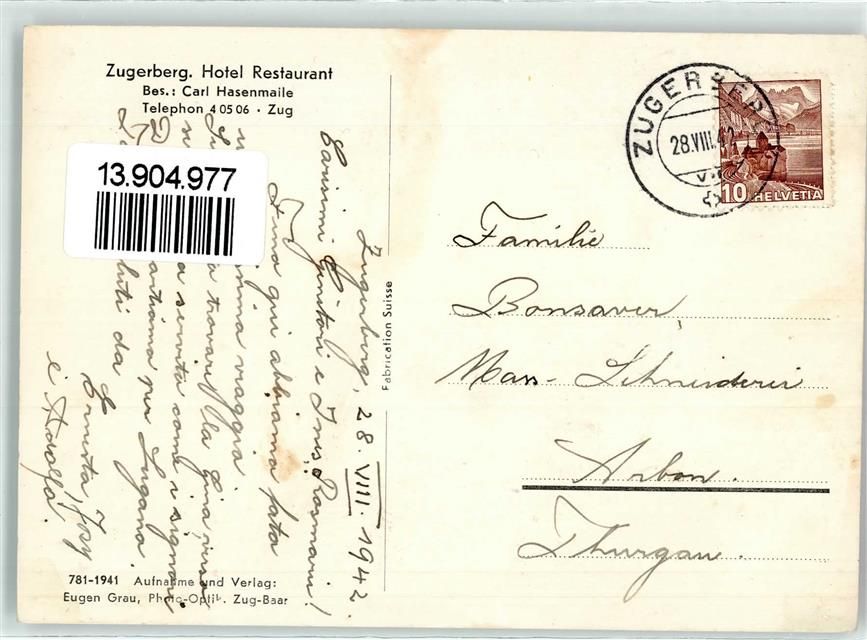 Zugerberg. Hotel Restaurant
Bes.: Carl Hasenmaile
Telephon 4 05 06 · Zug
13.904.977
Zugerberg, 28. VIII. 1942
Carissimi Genitori e Ines Rosmarin!
Fino qui abbiamo fatto
viaggio.
trovar la Gina verso
servita come i signori
partiamo per Lugano.
saluti da
Ernesta, Josy
e Adolfo.
781-1941 Aufnahme und Verlag:
Eugen Grau, Photo-Optik. Zug-Baar
Fabrication Suisse
ZUGERBERG
28.VIII.42
10 HELVETIA
Familie
Bonsaver,
Mass- Schneiderei
Arbon.
Thurgau.